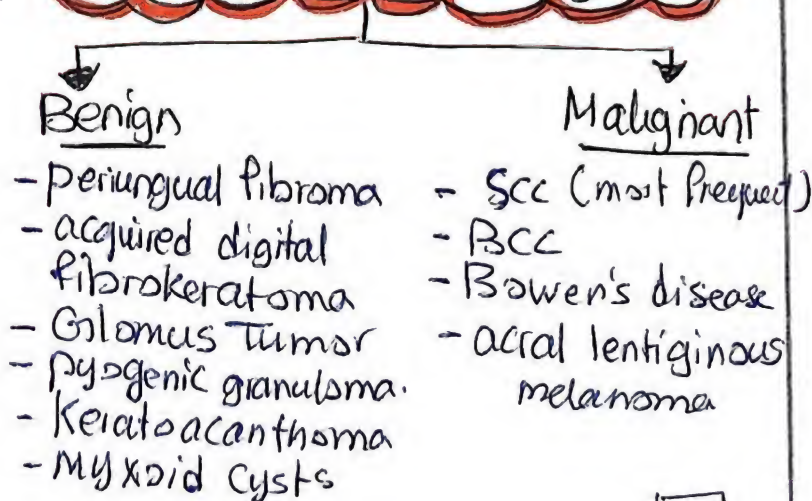 Benign
- periungual fibroma
- acquired digital
fibrokeratoma
- Glomus Tumor
- pyogenic granuloma.
- Keratoacanthoma
- Myxoid cysts
Malignant
- SCC (most frequent)
- BCC
- Bowen's disease
- acral lentiginous
melanoma